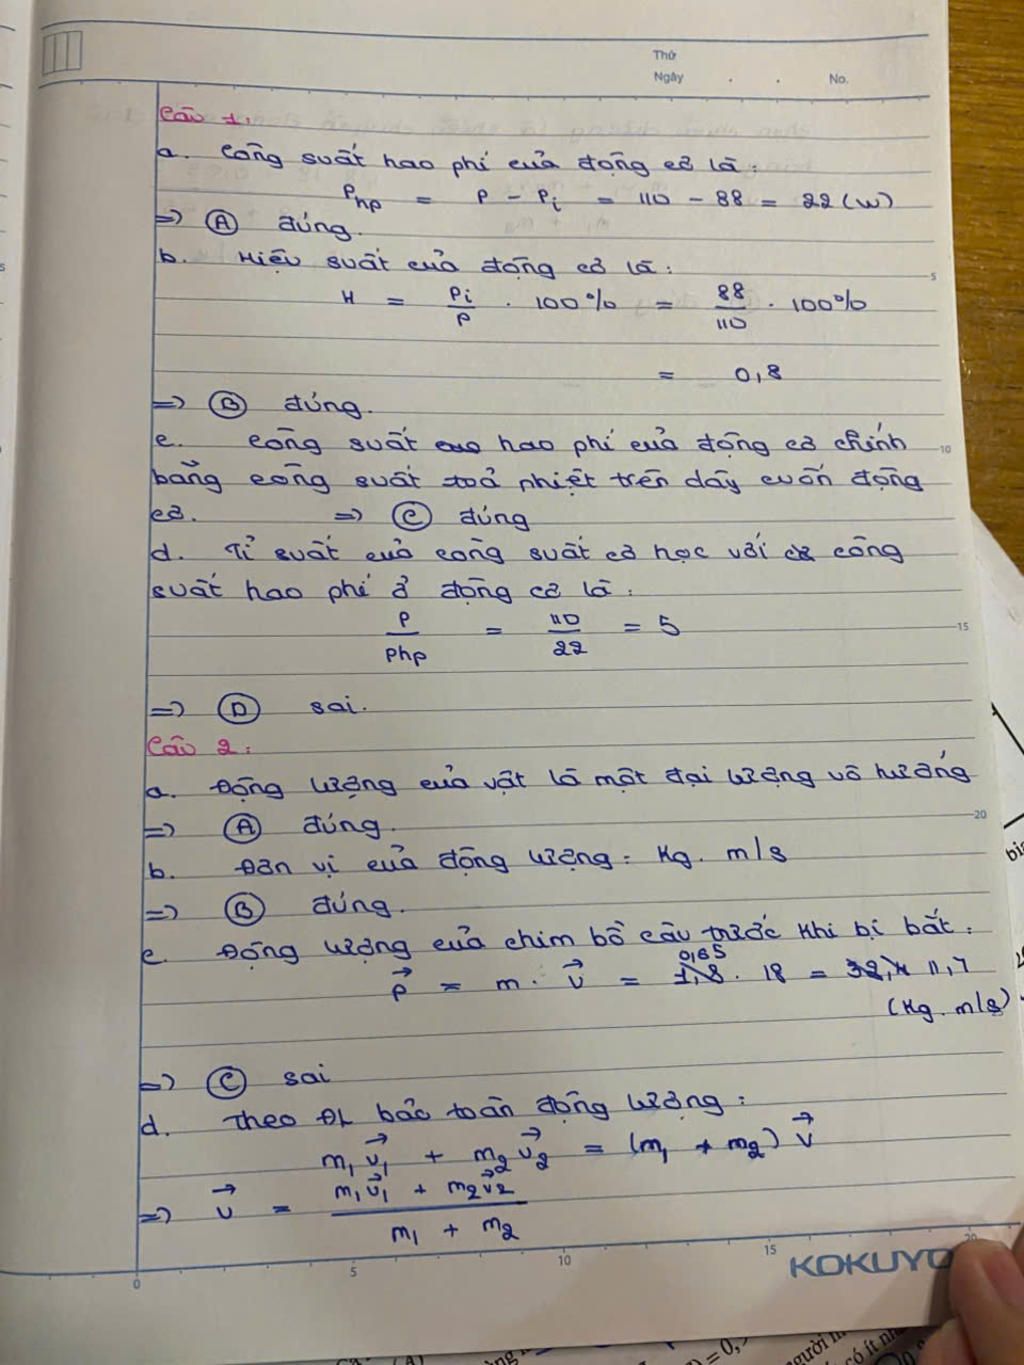 Thứ
Ngày . . No.
Câu 1:
a. Công suất hao phí của động cơ là:
Php = P - Pi = 110 - 88 = 22 (W)
=> (A) đúng.
b. Hiệu suất của động cơ là:
H = Pi/P . 100% = 88/110 . 100%
= 0,8
=> (B) đúng.
c. Công suất hao phí của động cơ chính
bằng công suất toả nhiệt trên dây cuốn động
cơ. => (C) đúng
d. Tỉ suất của công suất cơ học với công
suất hao phí ở động cơ là:
P/Php = 110/22 = 5
=> (D) sai.
Câu 2:
a. Động lượng của vật là một đại lượng vô hướng
=> (A) đúng.
b. Đơn vị của động lượng: Kg. m/s
=> (B) đúng.
c. Động lượng của chim bồ câu trước khi bị bắt:
p⃗ = m. v⃗ = 0,65 . 18 = 11,7
(Kg. m/s)
=> (C) sai
d. Theo ĐL bảo toàn động lượng:
m₁v⃗₁ + m₂v⃗₂ = (m₁ + m₂) v⃗
=> v⃗ = (m₁v⃗₁ + m₂v⃗₂)/(m₁ + m₂)
5
10
15
20
0 5 10 15 20
KOKUYO